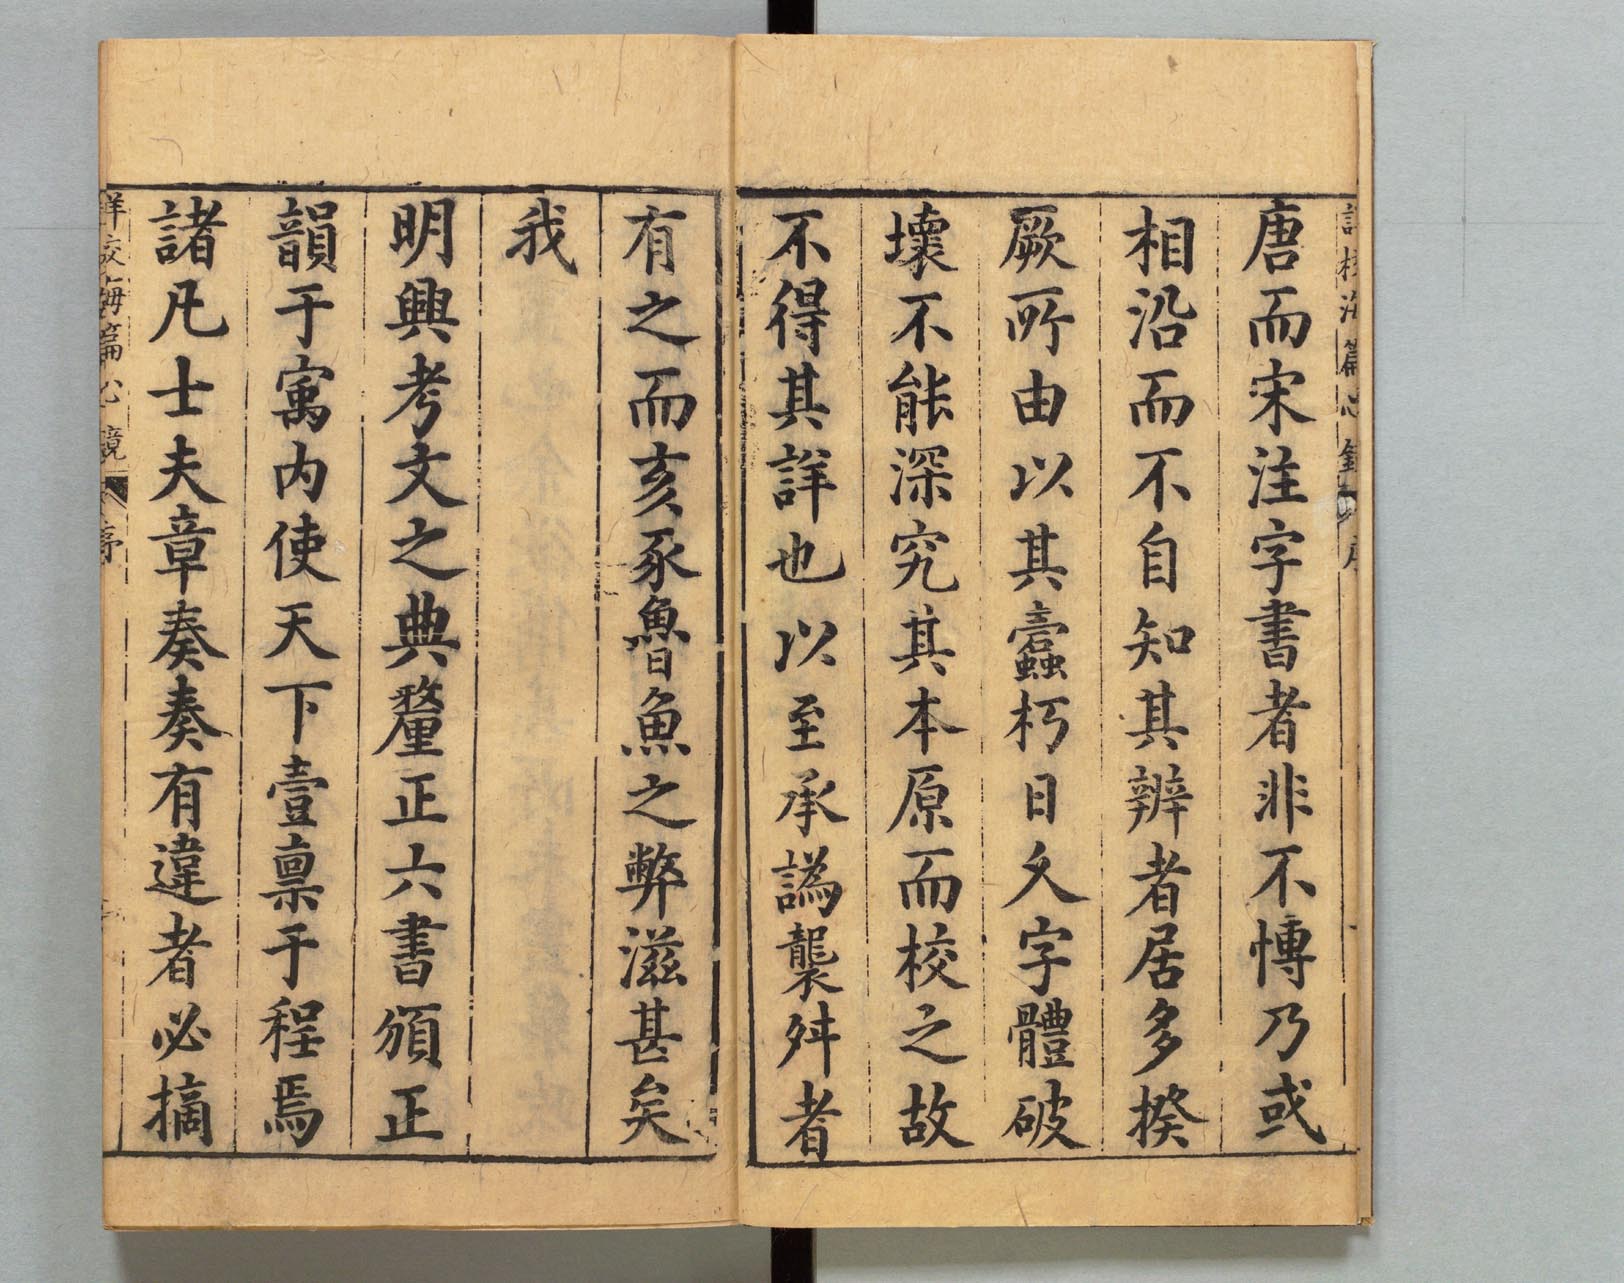 唐而宋注字書者非不愽乃或
相沿而不自知其辨者居多揆
厥所由以其蠹朽日久字體破
壞不能深究其本原而校之故
不得其詳也以至承譌襲舛者
有之而亥豕魯魚之弊滋甚矣
我
明興考文之典釐正六書頒正
韻于寓内使天下壹禀于程焉
諸凡士夫章奏奏有違者必摘
詳校海篇心鏡 序